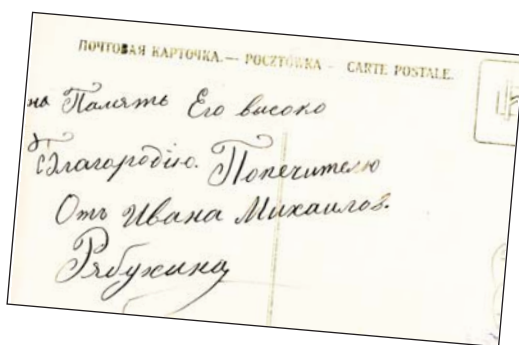 ПОЧТОВАЯ КАРТОЧКА. — POCZTÓWKA — CARTE POSTALE.
на Память Его высоко
Благородію. Попечителю
Отъ Ивана Михаилов.
Рябухина